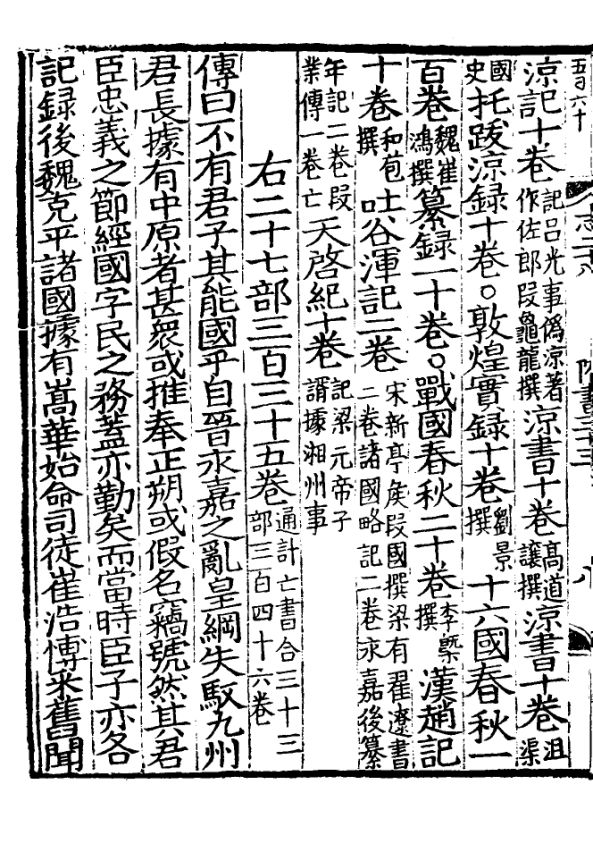 五百六十
志二十八
隋書三十三
八
涼記十卷記呂光事偽涼著作佐郎段龜龍撰涼書十卷高道讓撰涼書十卷沮渠
國史托跋涼録十卷。敦煌實録十卷劉景撰十六國春秋一
百卷魏崔鴻撰纂録一十卷。戰國春秋二十卷李槩撰漢趙記
十卷和苞撰吐谷渾記二卷宋新亭侯段國撰梁有翟遼書二卷諸國略記二卷永嘉後纂
年記二卷段業傳一卷亡天啓紀十卷記梁元帝子諝據湘州事
右二十七部三百三十五卷通計亡書合三十三部三百四十六卷
傳曰不有君子其能國乎自晉永嘉之亂皇綱失馭九州
君長據有中原者甚衆或推奉正朔或假名竊號然其君
臣忠義之節經國字民之務蓋亦勤矣而當時臣子亦各
記録後魏克平諸國據有嵩華始命司徒崔浩博采舊聞